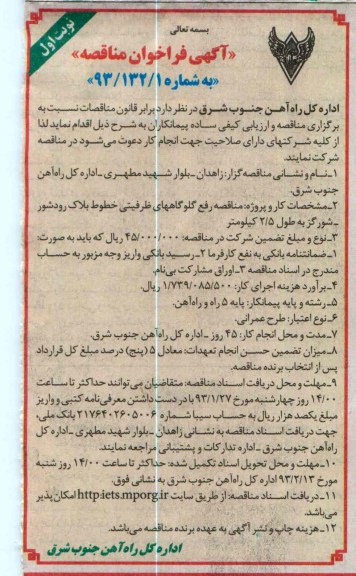 بسمه تعالی
نوبت اول
«آگهی فراخوان مناقصه»
«به شماره ۹۳/۱۳۲/۱»
اداره کل راه آهن جنوب شرق در نظر دارد برابر قانون مناقصات نسبت به
برگزاری مناقصه و ارزیابی کیفی ساده پیمانکاران به شرح ذیل اقدام نماید لذا
از کلیه شرکتهای دارای صلاحیت جهت انجام کار دعوت می‌شود در مناقصه
شرکت نمایند.
۱ـ نام و نشانی مناقصه گزار: زاهدان ـ بلوار شهید مطهری ـ اداره کل راه آهن
جنوب شرق.
۲ـ مشخصات کار و پروژه: مناقصه رفع گلوگاههای ظرفیتی خطوط بلاک رودشور
ـ شورگز به طول ۲/۵ کیلومتر
۳ـ نوع و مبلغ تضمین شرکت در مناقصه: ۴۵/۰۰۰/۰۰۰ ریال که باید به صورت:
۱ـ ضمانتنامه بانکی به نفع کارفرما ۲ـ رسید بانکی واریز وجه مزبور به حساب
مندرج در اسناد مناقصه ۳ـ اوراق مشارکت بی‌نام.
۴ـ برآورد هزینه اجرای کار: ۱/۷۳۹/۰۸۵/۵۰۰ ریال.
۵ـ رشته و پایه پیمانکار: پایه ۵ راه و راه آهن.
۶ـ نوع اعتبار: طرح عمرانی.
۷ـ مدت و محل انجام کار: ۴۵ روز ـ اداره کل راه آهن جنوب شرق.
۸ـ میزان تضمین حسن انجام تعهدات: معادل ۵ (پنج) درصد مبلغ کل قرارداد
پس از انتخاب برنده مناقصه.
۹ـ مهلت و محل دریافت اسناد مناقصه: متقاضیان می‌توانند حداکثر تا ساعت
۱۴/۰۰ روز چهارشنبه مورخ ۹۳/۱/۲۷ با در دست داشتن معرفی‌نامه کتبی و واریز
مبلغ یکصد هزار ریال به حساب سیبا شماره ۲۱۷۶۴۰۲۶۰۵۰۰۶ بانک ملی،
جهت دریافت اسناد مناقصه به نشانی زاهدان ـ بلوار شهید مطهری ـ اداره کل
راه آهن جنوب شرق ـ اداره تدارکات و پشتیبانی مراجعه نمایند.
۱۰ـ مهلت و محل تحویل اسناد تکمیل شده: حداکثر تا ساعت ۱۴/۰۰ روز شنبه
مورخ ۹۳/۲/۱۳ اداره کل راه آهن جنوب شرق به نشانی فوق.
۱۱ـ دریافت اسناد مناقصه: از طریق سایت http:iets.mporg.ir امکان پذیر
می‌باشد.
۱۲ـ هزینه چاپ و نشر آگهی به عهده برنده مناقصه می‌باشد.
اداره کل راه آهن جنوب شرق